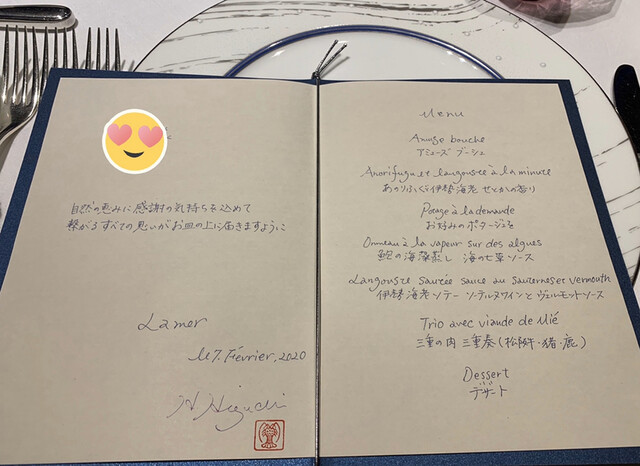 自然の恵みに感謝の気持ちを込めて
繋がるすべての思いがお皿の上に届きますように
Lamer
le 7. Février, 2020
H Higuchi
Menu
Amuse bouche
アミューズ ブーシュ
Anorifugu et langouste à la minute
あのりふぐと伊勢海老 せとかの香り
Potage à la demande
お好みのポタージュを
Ormeau à la vapeur sur des algues
鮑の海藻蒸し 海の七草ソース
Langouste Sautée sauce au Sauternes et Vermouth
伊勢海老ソテー ソーテルヌワインとヴェルモットソース
Trio avec viande de Mié
三重の肉 三重奏(松阪牛・猪・鹿)
Dessert
デザート